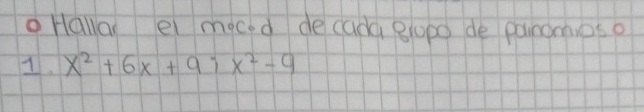 Hallar el m.c.d de cada grupo de polinomios
1. x² + 6x + 9 ; x² - 9